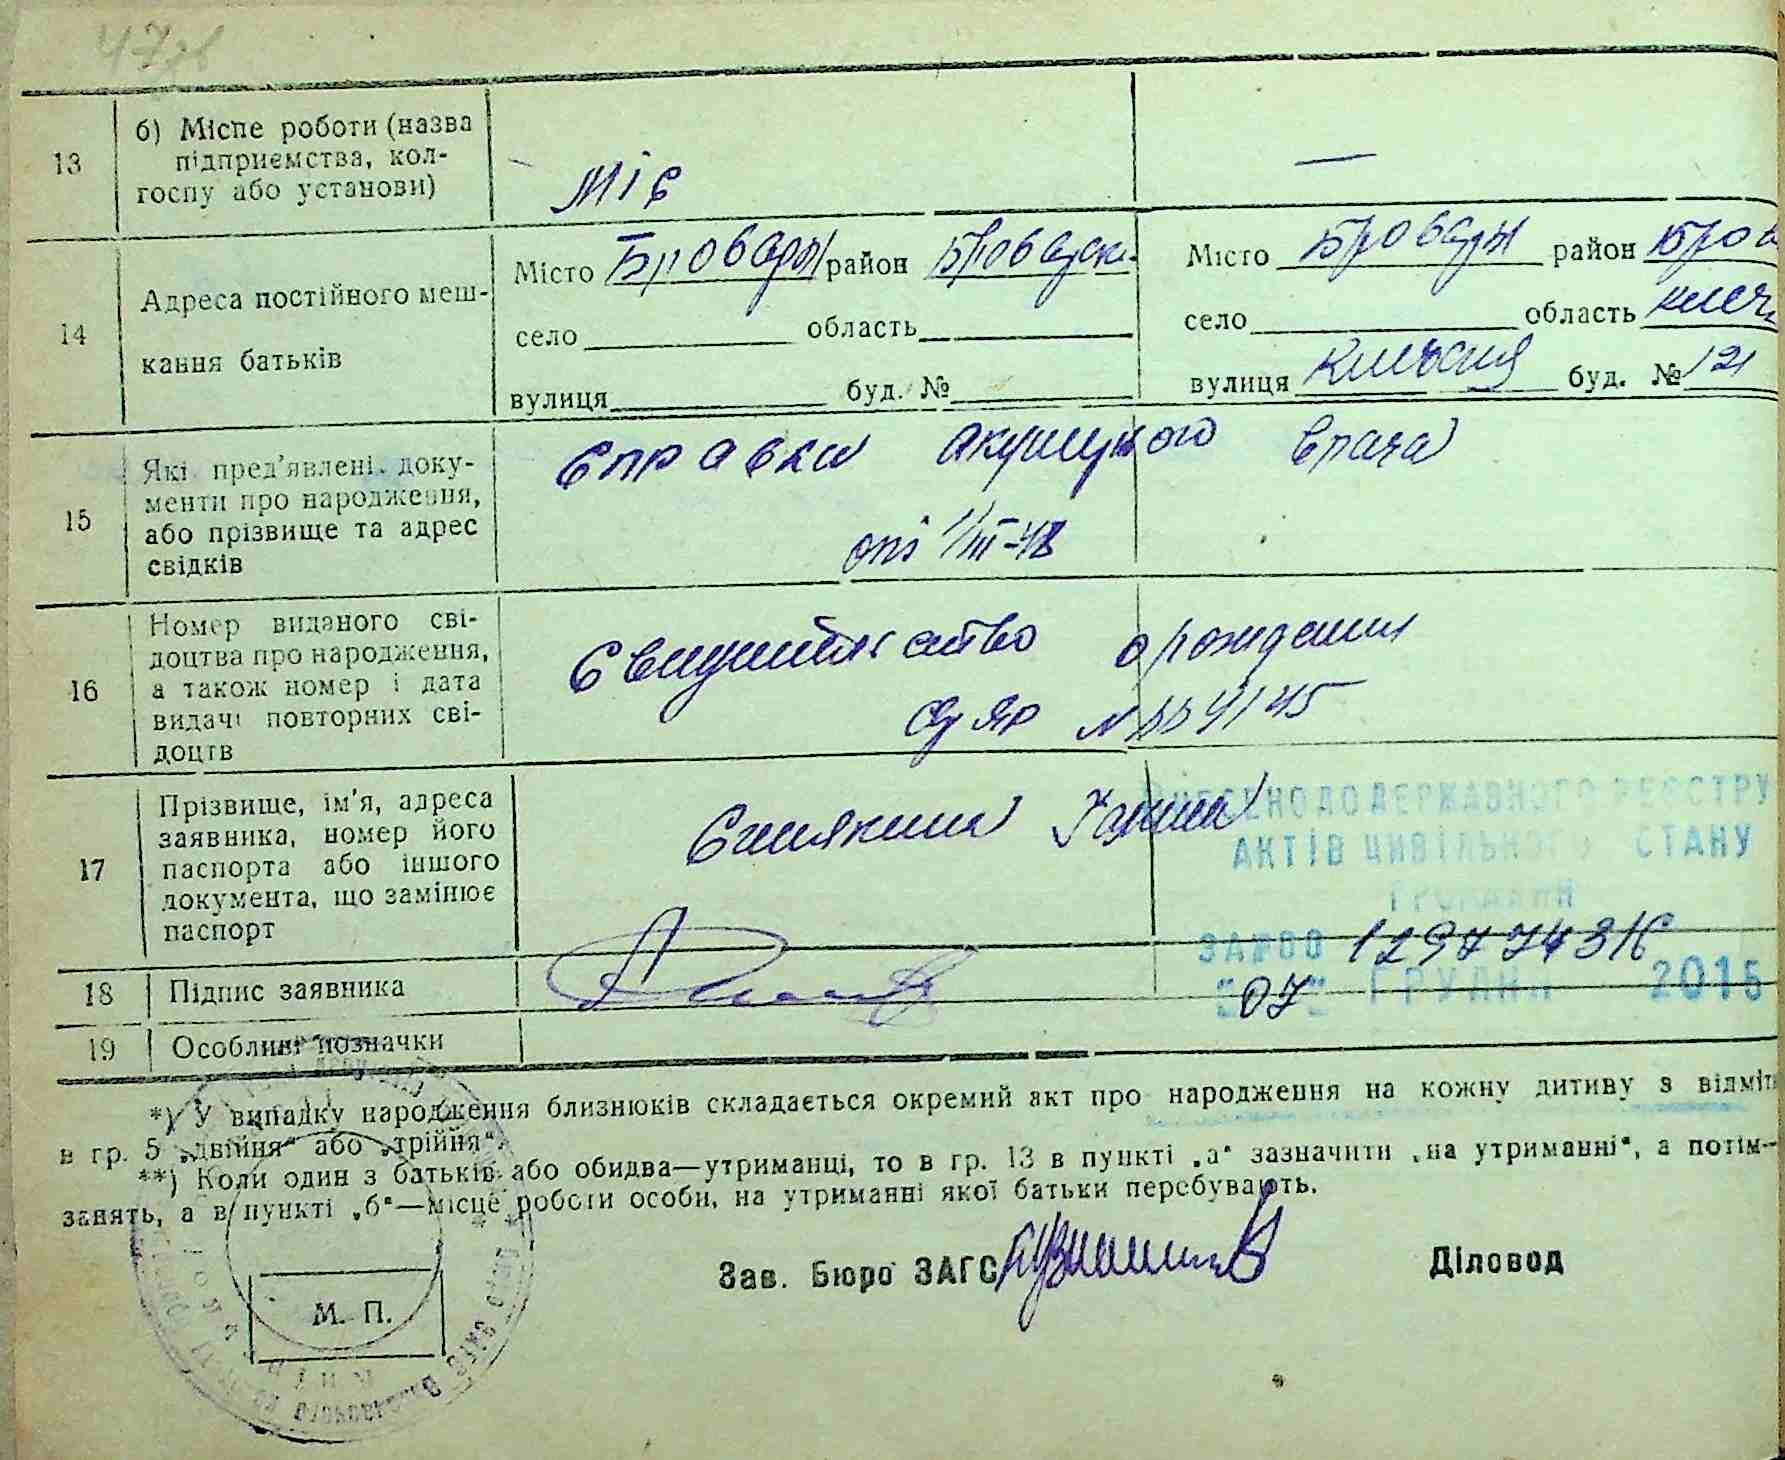 47зв
13
б) Місце роботи (назва
підприємства, кол-
госпу або установи)
—
14
Адреса постійного меш-
кання батьків
Місто Бровары район Броварск.
село область
вулиця буд. №
Місто Бровары район Бров
село область Киев
вулиця Киевская буд. № 121
15
Які пред'явлені доку-
менти про народження,
або прізвище та адрес
свідків
Справка акушуного врача
от 1/III-48
16
Номер виданого сві-
доцтва про народження,
а також номер і дата
видачі повторних сві-
доцтв
Свидительство о рождении
№ 554145
17
Прізвище, ім'я, адреса
заявника, номер його
паспорта або іншого
документа, що замінює
паспорт
Синякина Галина
ВНЕСЕНО ДО ДЕРЖАВНОГО РЕЄСТРУ
АКТІВ ЦИВІЛЬНОГО СТАНУ
ГРОМАДЯН
ЗА №00 129774316
"07" ГРУДНЯ 2015
18
Підпис заявника
19
Особливі позначки
*) У випадку народження близнюків складається окремий акт про народження на кожну дитину з відміт
в гр. 5 „двійня“ або „трійня“.
**) Коли один з батьків або обидва—утриманці, то в гр. 13 в пункті „а“ зазначити „на утриманні“, а потім—
занять, а в пункті „б“—місце роботи особи, на утриманні якої батьки перебувають.
Зав. Бюро ЗАГС
Діловод
М. П.